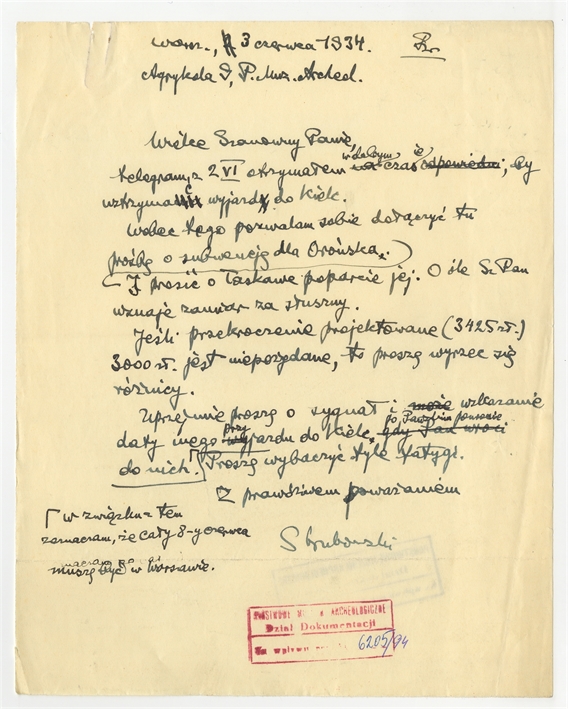 Warsz., 3 czerwca 1934.
Agrykola 9, P. Muz. Archeol.
Wielce Szanowny Panie,
telegram z 2 VI otrzymałem w dobrym czasie odpowiedni, by
wztrzymać wyjazd do Kielc.
Wobec tego pozwalam sobie dołączyć tu
prośbę o subwencję dla Orońska.
I prosić o łaskawe poparcie jej. O ile Sz. Pan
uznaje zamiar za słuszny.
Jeśli przekroczenie projektowane (3425 zł.)
3000 zł. jest niepożądane, to proszę wyrzec się
różnicy.
Uprzejmie proszę o sygnał i może wskazanie
daty mego przyjazdu do Kielc, po Pańskim powrocie gdy Pan wróci
do nich. Proszę wybaczyć tyle fatygi.
Z prawdziwem poważaniem
W związku z tem
zaznaczam, że cały 8-y czerwca
muszę być w Warszawie.
PAŃSTWOWE MUZEUM ARCHEOLOGICZNE
Dział Dokumentacji
Nr wpływu 6205/94